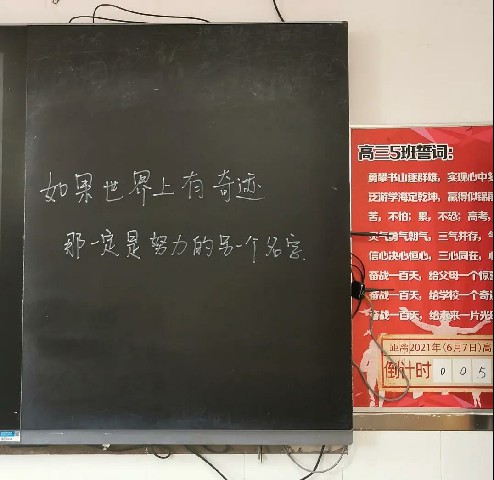 如果世界上有奇迹
那一定是努力的另一个名字
高三5班誓词:
勇攀书山逐群雄，实现心中
泛游学海定乾坤，赢得似锦
苦，不怕；累，不恐；高考，
灵气勇气朝气，三气并存，
信心决心恒心，三心同在，
奋战一百天，给父母一个惊
奋战一百天，给学校一个奇
奋战一百天，给未来一片光
距离2021年(6月7日)高
倒计时 0 0 5